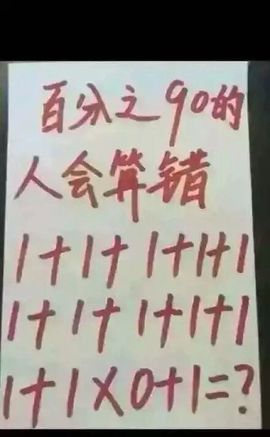 百分之90的
人会算错
1+1+1+1+1
1+1+1+1+1
1+1×0+1=?